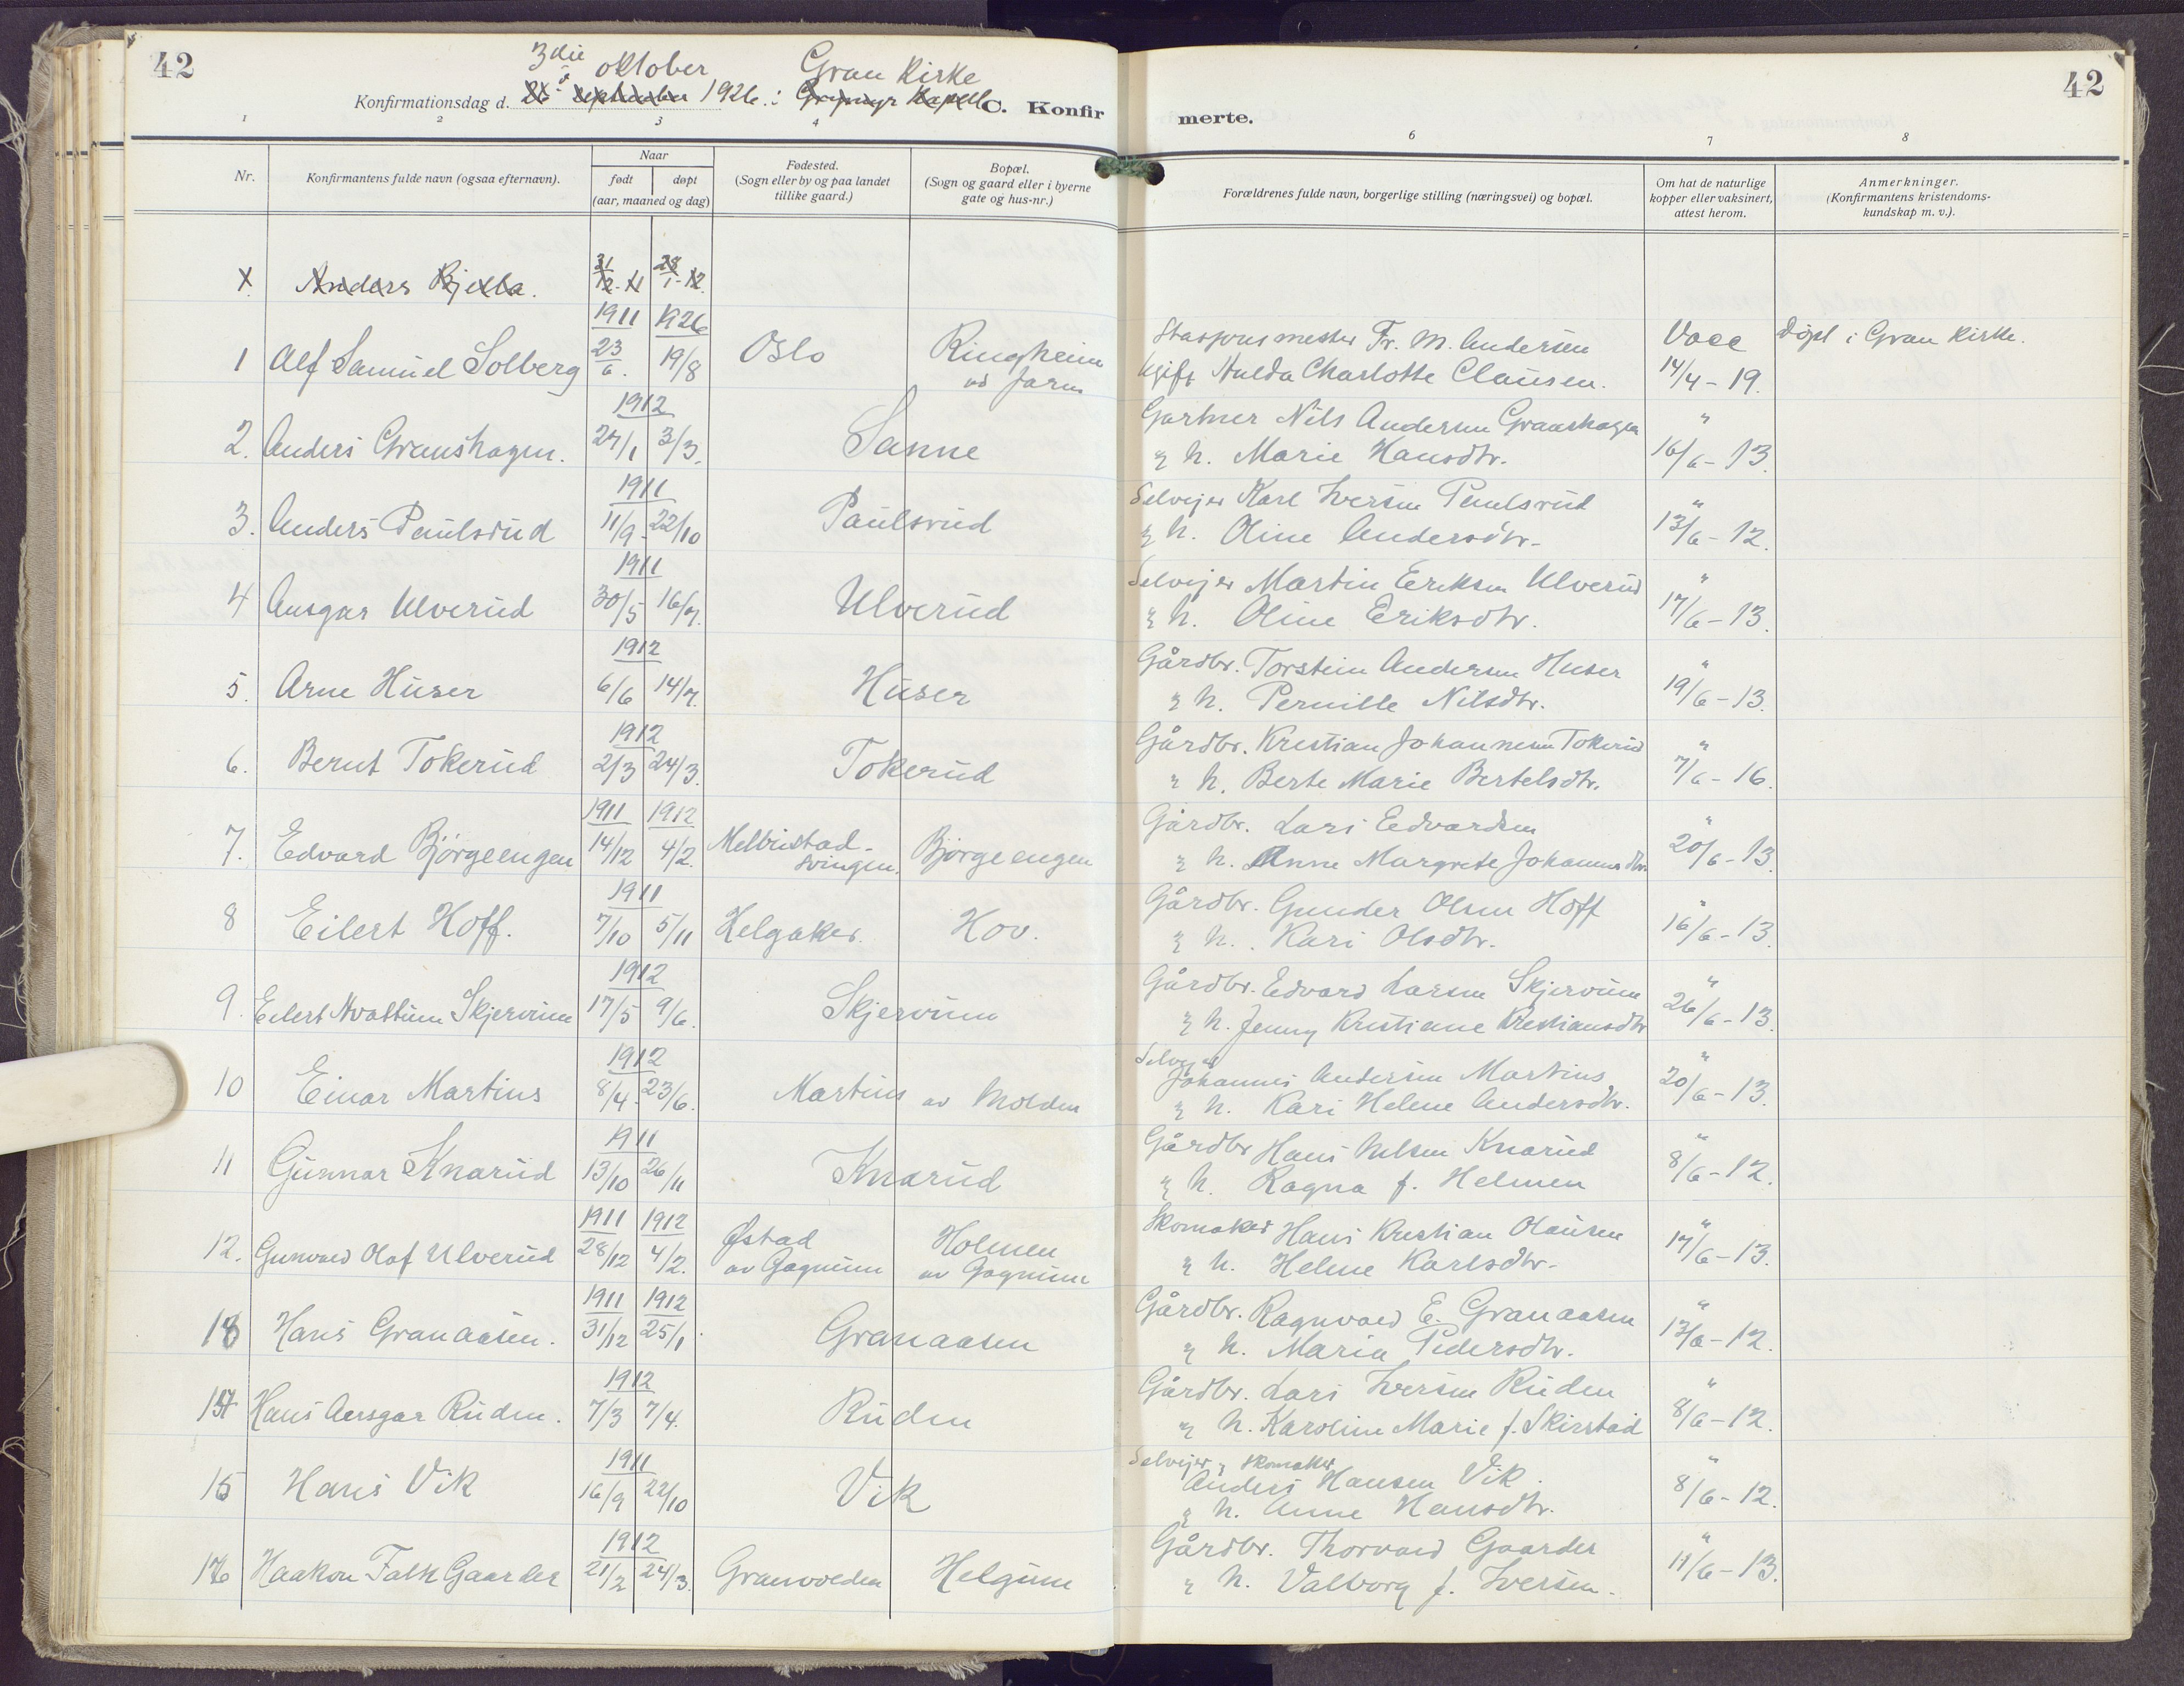 42
3die oktober Gran Kirke
Konfirmationsdag d. 26 september 1926 i Grymyr Kapell C. Konfir
merte.
42
1 2 3 4 6 7 8
Nr. Konfirmantens fulde navn (ogsaa efternavn). Naar født døpt (aar, maaned og dag) Fødested. (Sogn eller by og paa landet tillike gaard.) Bopæl. (Sogn og gaard eller i byerne gate og hus-nr.) Forældrenes fulde navn, borgerlige stilling (næringsvei) og bopæl. Om hat de naturlige kopper eller vaksinert, attest herom. Anmerkninger. (Konfirmantens kristendoms-kundskap m. v.).
Anders Bjella. 31/12-11 28/1-12.
1911 1926
1 Alf Samuel Solberg 23/6. 19/8 Oslo Ringheim av Jaren Stasjonsmester Fr. M. Andersen Vacc døpt i Gran Kirke.
Ugift Hulda Charlotte Clausen. 14/4-19.
1912
2. Anders Granshagen. 27/1 3/3. Sanne Gartner Nils Andersen Granshagen "
& h. Marie Hansdtr. 16/6-13.
1911
3. Anders Paulsrud 11/9- 22/10 Paulsrud Selvejer Karl Iversen Paulsrud "
& h. Oline Andersdtr. 13/6-12.
1911
4 Ansgar Ulverud 30/5 16/7. Ulverud Selvejer Martin Eriksen Ulverud "
& h. Oline Eriksdtr. 17/6-13.
1912
5. Arne Huser 6/6 14/7. Huser Gårdbr. Torstein Andersen Huser "
& h. Pernille Nilsdtr. 19/6-13.
1912
6. Bernt Tokerud 2/3 24/3. Tokerud Gårdbr. Kristian Johannesen Tokerud "
& h. Berte Marie Bertelsdtr. 7/6-16.
1911 1912
7. Edvard Bjørgeengen 14/12 4/2. Melbristad-svingen. Bjørgeengen Gårdbr. Lars Edvardsen "
& h. Anne Margrete Johannesdtr. 20/6-13
1911
8 Eilert Hoff. 7/10 5/11 Helgaker. Hov. Gårdbr. Gunder Olsen Hoff "
& h. Kari Olsdtr. 16/6-13.
1912
9. Eilert Hvattum Skjervum 17/5 9/6. Skjervum Gårdbr. Edvard Larsen Skjervum "
& h. Jenny Kristiane Kristiansdtr 26/6-13.
1912
10 Einar Martins 8/4- 23/6. Martins av Molden Selvejer Johannes Andersen Martins "
& h. Kari Helene Andersdtr. 20/6-13.
1911
11 Gunnar Knarud 13/10 26/11 Knarud Gårdbr Hans Nilsen Knarud "
& h. Ragna f. Helmen 8/6-12.
1911 1912
12. Gunvald Olaf Ulverud 28/12 4/2. Østad av Gagnum Holmen av Gagnum Skomaker Hans Kristian Olausen "
& h. Helene Karlsdtr. 17/6-13.
1911 1912
13 Hans Granaasen. 31/12 25/1. Granaasen Gårdbr. Ragnvald E. Granaasen "
& h. Maria Pedersdtr. 13/6-12.
1912
14 Hans Ansgar Ruden. 7/3 7/4. Ruden Gårdbr. Lars Iversen Ruden "
& h. Karoline Marie f. Skirstad 8/6-12.
1911
15 Hans Vik 16/9 22/10 Vik Selvejer & skomaker Anders Hansen Vik. "
& h. Anne Hansdtr. 8/6-12.
1912
16 Haakon Falk Gaarder 21/2 24/3. Granvolden Helgum Gårdbr. Thorvald Gaarder "
& h. Valborg f. Iversen. 11/6-13.